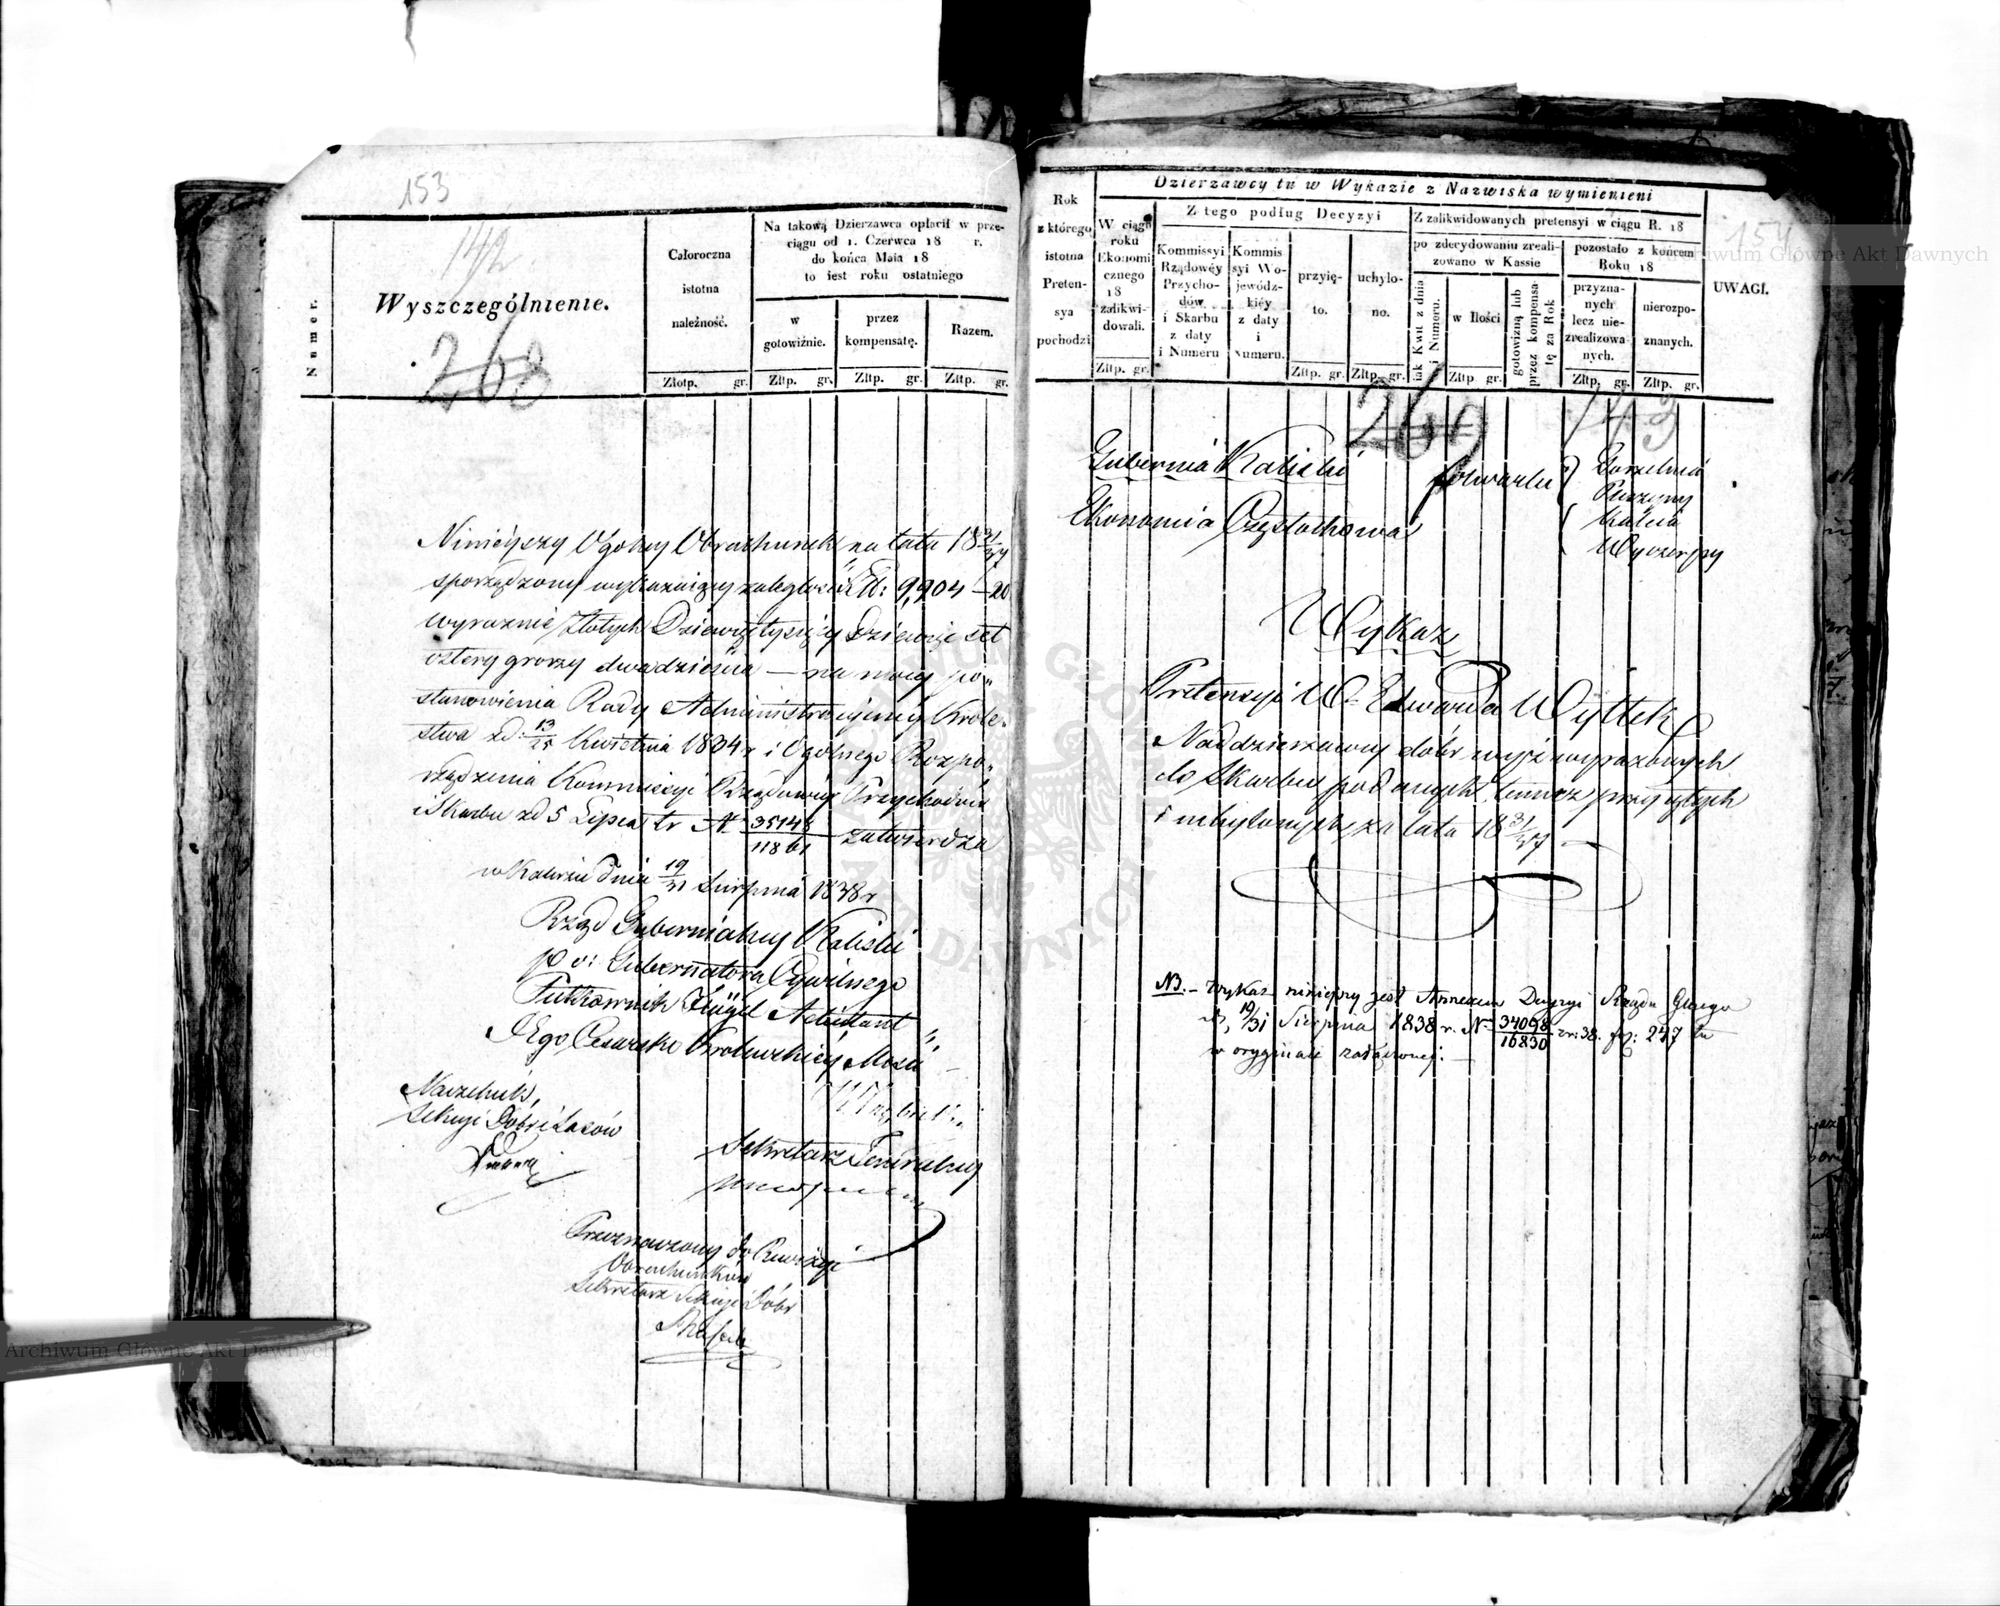 153
142
268
Numer.
Wyszczególnienie.
Całoroczna
istotna
należność.
Złotp. gr.
Na takową Dzierzawca opłacił w prze-
ciągu od 1. Czerwca 18 r.
do końca Maia 18
to iest roku ostatniego
w
gotowiźnie.
Zltp. gr.
przez
kompensatę.
Zltp. gr.
Razem.
Zltp. gr.
Ninieyszy Ogolny Obrachunek na lata 18 31/37
sporządzony wykazuiący zaległości Zł: 9,904 – 20
wyraznie Złotych Dziewięćtysięcy Dziewięćset
cztery groszy dwadzieścia — na mocy po„
stanowienia Rady Administracyjney Krole„
stwa zd: 13/25 Kwietnia 1834 r i Ogolnego Rozpo„
rządzenia Kommissyi Rządowey Przychodów
i Skarbu zd 5 Lipca tr N 35148/11861 zatwierdza
w Kaliszu dnia 19/31 Sierpnia 1838 r
Rząd Gubernialny Kaliski
p o: Gubernatora Cywilnego
Pułkownik Flügel Adiutant
JEgo Cesarsko Krolewskiey Mości
Naczelnik,
Sekcyi Dóbr i Lasów
Sekretarz Jeneralny
Przeznaczony do Rewizyi
Obrachunków
Sekretarz Sekcyi Dóbr
154
Dzierzawcy tu w Wykazie z Nazwiska wymienieni
Rok
z którego
istotna
Preten-
sya
pochodzi
W ciągu
roku
Ekonomi
cznego
18
zalikwi-
dowali.
Zltp. gr.
Z tego podług Decyzyi
Kommissyi
Rządowéy
Przycho-
dów
i Skarbu
z daty
i Numeru
Kommis
syi Wo-
jewódz-
kiéy
z daty
i
Numeru.
przyię-
to.
Zltp. gr.
uchylo-
no.
Zltp. gr.
Z zalikwidowanych pretensyi w ciągu R. 18
po zderydowaniu zreali-
zowano w Kassie
iak Kwit z dnia
i Numeru.
w Ilości
Zltp gr.
gotowizną lub
przez kompensa-
tę za Rok
pozostało z końcem
Roku 18
przyzna-
nych
lecz nie-
zrealizowa
nych.
Zltp. gr.
nierozpo-
znanych.
Zltp. gr.
UWAGI.
269
143
Gubernia Kaliska
Ekonomia Częstochowa
folwarku
Gorzelnia
Kuźnia
Wyczerpy
Wykaz
Pretensyi W. Edwarda Wyttek
Naddzierzawcy dóbr wyż wyrazonych
do Skarbu podanych, temuz przyiętych
i uchylonych, za lata 18 31/37
NB. – Wykaz niniejszy jest Annexem Decyzyi Rządu Gbrego
z d, 19/31 Sierpnia 1838 r. N 34098/16830 vr: 38. fol: 247 tu
w oryginale załączonej. —
Archiwum Główne Akt Dawnych
Archiwum Główne Akt Dawnych
ARCHIWUM GŁÓWNE AKT DAWNYCH